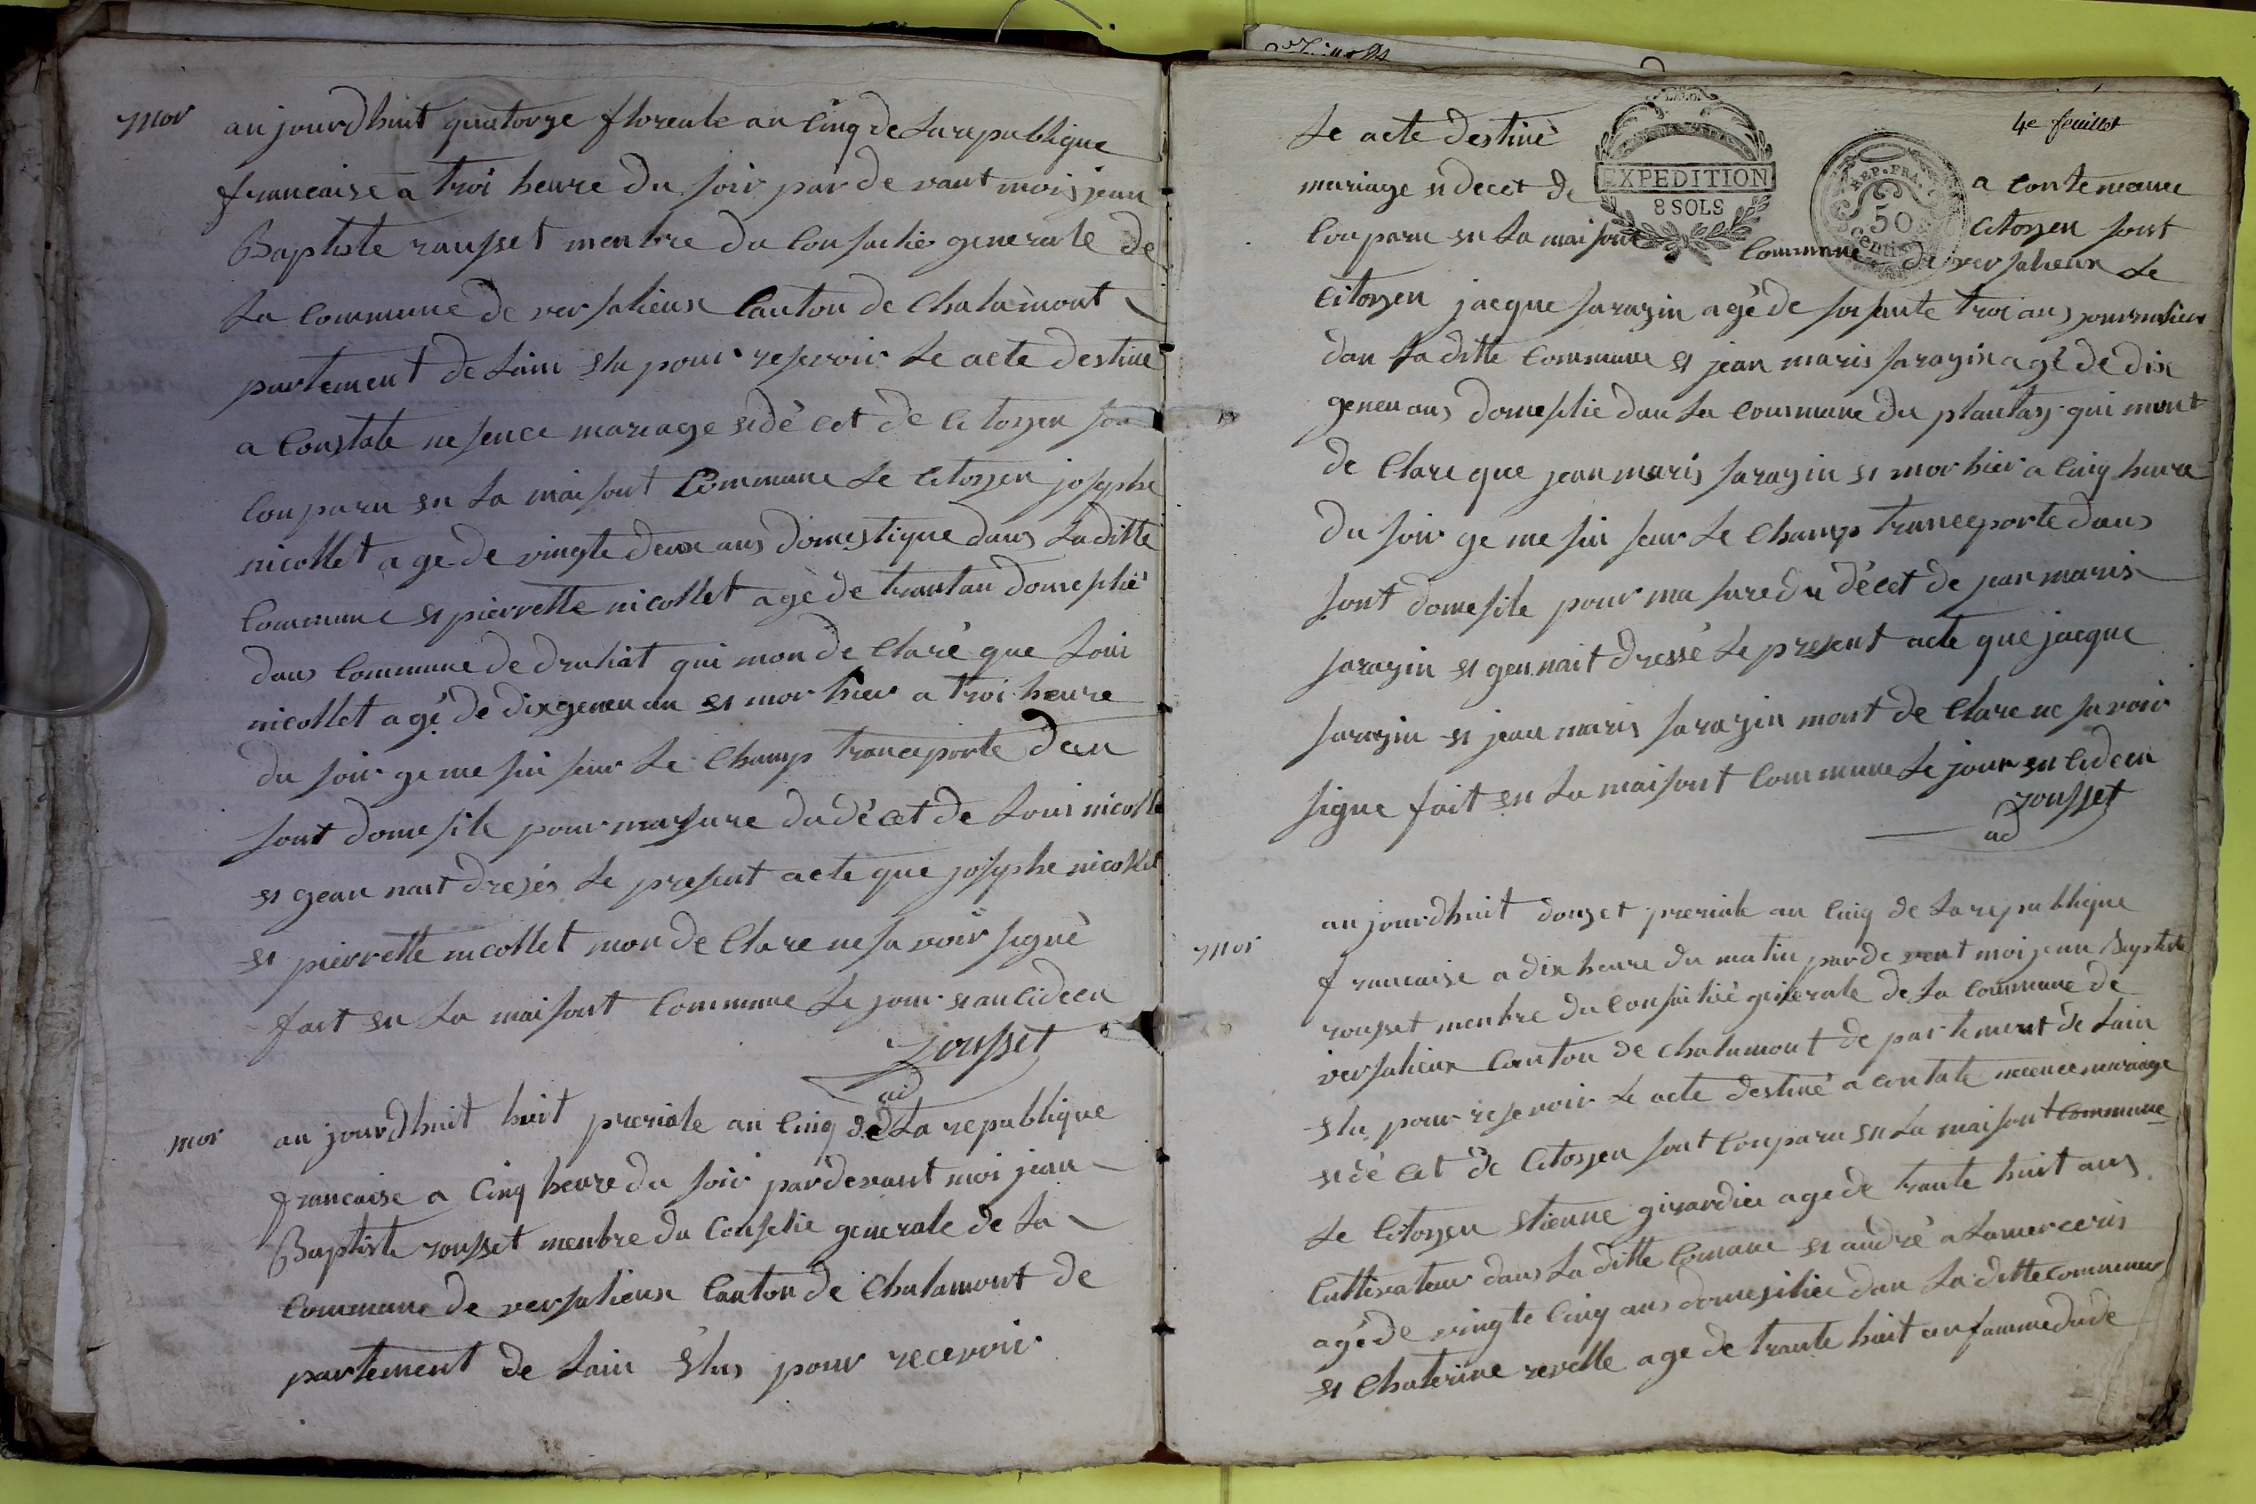 mor
au jourdhuit quatorze floreale an Cinq de La republique
francaise a troi heure du soir par de vant mois jean
Baptiste rousset menbre du Conseclie generale de
La Commune de versalieux Canton de Chalamont
partement de Lain elu pour reservoir Le acte destine
a Constate nesence mariage et dé cet de Citoyen son
Conparu en La maisont Commune Le Citoyen josephe
nicollet age de vingte deux ans domestique dans La ditte
Commune et pierrette nicollet agè de trantan domesplié
dans Commune de druliat qui mon de Claré que Loui
nicollet agé de dixgeneu an et mor hier a troi heure
du soir ge me sui seur Le Champ tranceporte dan
sont domesile pour masure du dé cet de Loui nicolle
et gean nait dresés Le present acte que josephe nicollet
et pierrette nicollet mon de Clare ne savoir signè
fait en La maisont Commune Le jour et an Cideen
rousset
ad
mor
au jourdhuit huit preriale an Cinq de La republique
francaise a Cinq heure du soir pardevant moi jean
Baptiste rousset menbre du Conselie generale de La
Commune de versalieux Canton de Chalamont de
partement de Lain élus pour recevoir
4e feuillet
Le acte destiné
EXPEDITION
8 SOLS
REP. FRA.
50
centi
mariage et decet de a Conte
Conparu en La maisont Citoyen sont
Commune de versalieux Le
Citoyen jacque sarazin agé de soisante troi ans journalier
dan La ditte Commune et jean maris sarazin agé de dix
geneu ans domesplie dan La Commune du plantay qui mont
de Clare que jean maris sarazin et mor hier a Cinq heure
du soir ge me sui seur Le Champ tranceporte dans
sont domesile pour ma sure du décet de jean maris
sarazin et gean nait dressé Le present acte que jacque
sarazin et jean maris sarazin mont de Clare ne savoir
signe fait en La maisont Commune Le jour en Cideen
rousset
ad
mor
au jourdhuit douzet preriale an Cinq de La republique
francaise a dix heure du matin par de vent moi jean Baptiste
rousset menbre du Conseilié generale de La Commune de
versalieux Canton de Chalamont de partement de Lain
elu pour resevoir Le acte destiné a Contate necence mariage
et dé cet de Citoyen sont Conparu en La maisont Commune
Le Citoyen etienne girardier age de trante huit ans
Cultivateur dans La ditte Comune et andré alamerceris
agé de vingte Cinq ans domesilié dan La ditte Commune
et Chaterine revelle age de trante huit an famme du de